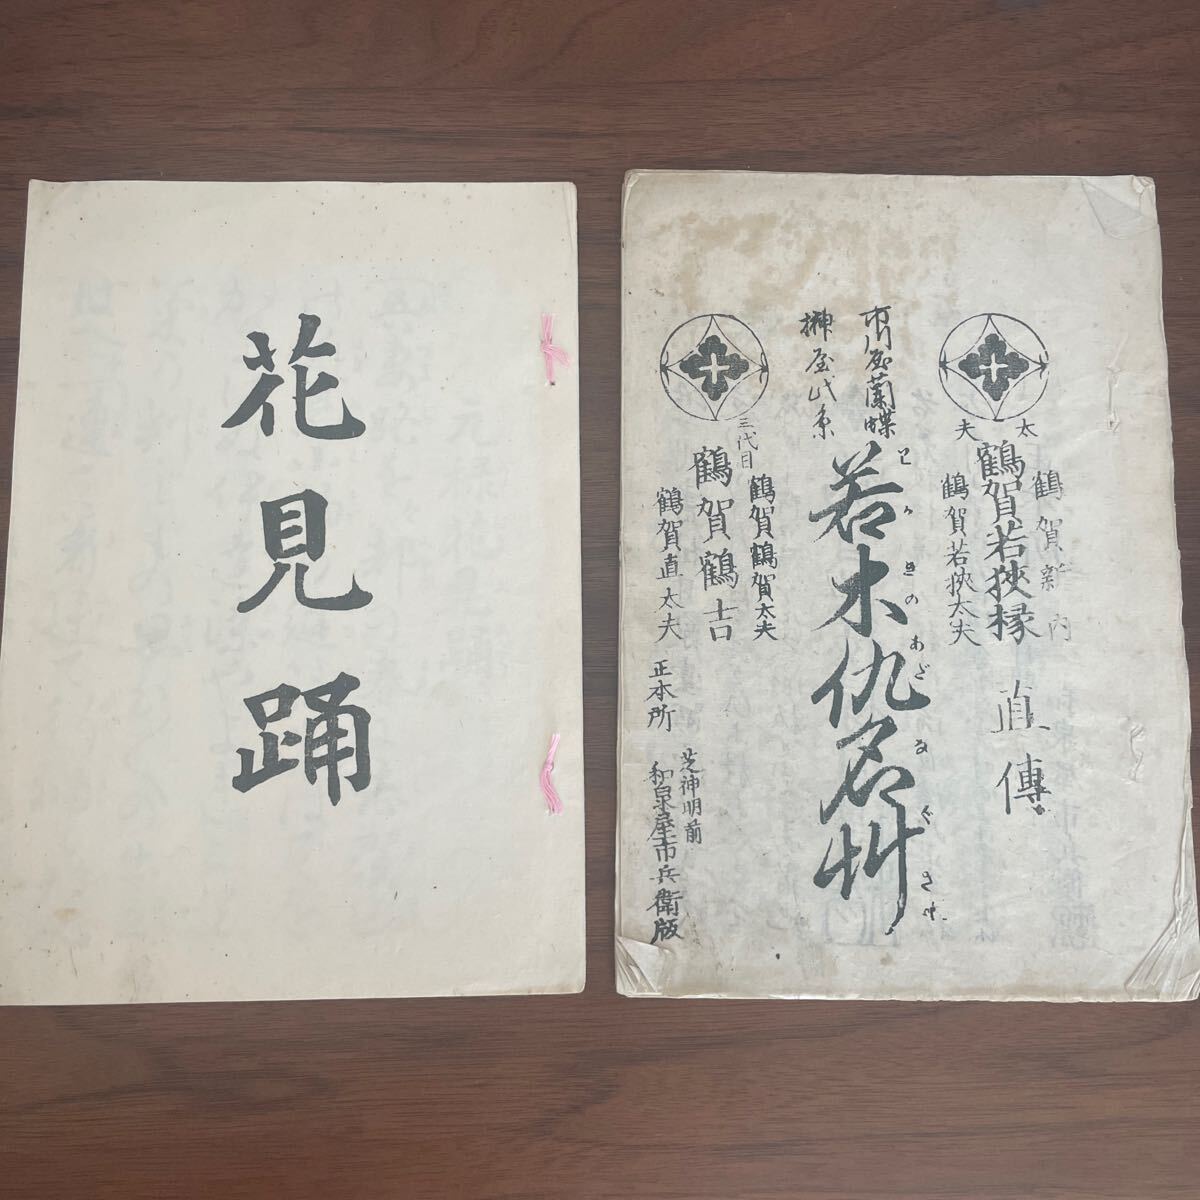 花見踊
太夫
鶴賀新内
鶴賀若狹掾
鶴賀若狹太夫
直傳
市川屋蘭蝶
榊屋此糸
若木仇名艸
わかきのあだなぐさ
三代目
鶴賀鶴賀太夫
鶴賀鶴吉
鶴賀直太夫
正本所
芝神明前
和泉屋市兵衛版